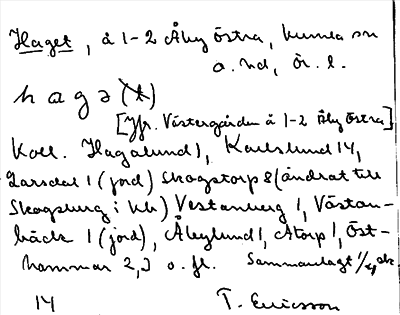 Haget, å 1-2 Åby Östra, Kumla sn
o. hd, Ör. l.
h a g ə (t)
[Jfr. Västergården å 1-2 Åby Östra]
Koll. Hagalund 1, Karlslund 14,
Larsdal 1 (jord) Skogstorp 8 (ändrat till
Skogsborg i kb) Vestanberg 1, Västan-
bäck 1 (jord), Åbylund 1, Atorp 1, Öst-
hammar 2,3 o. fl. Sammanlagt 1/4
14 T. Ericsson